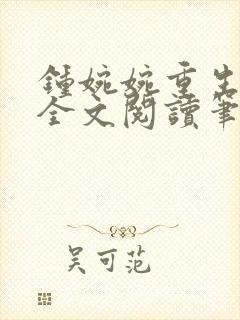 鍾婉婉重生
全文閱讀筆
吴可范